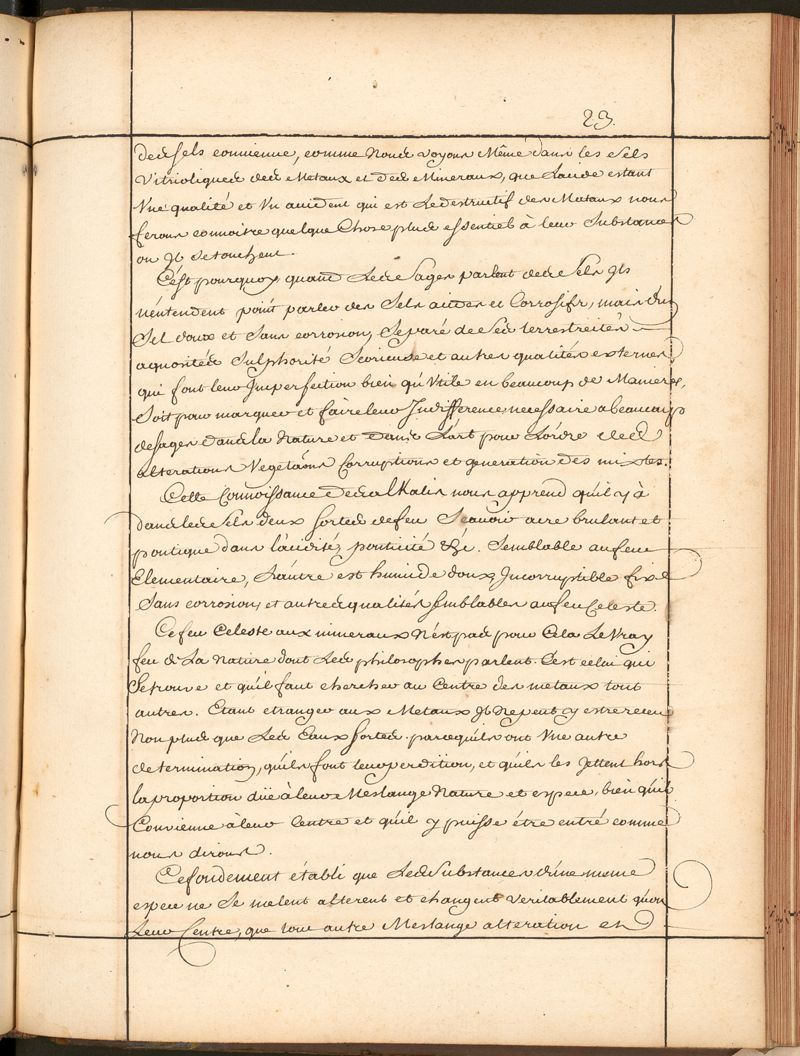 23.
des sels convienne, comme Nous voyons Même dans les sels
Vitrioliques des Metaux et des Mineraux, que L'acide estant
Vne qualité et Vn accident qui est Le destructif des Metaux nous
ferons connoitre quelque Chose plus essentiel à leur Substance
ou Ils se touchent.
C'est pourquoy quand Les Sages parlent des Sels Ils
n'entendent point parler des Sels acides et Corrosifs, mais du
Sel doux et Sans corrosion, Separé de Ses terrestreités
aquosités Sulphorité Scorieuse et autres qualités externes
qui font leur Imperfection bien qu'Vtile en beaucoup de Manieres,
Soit pour marquer et faire leur Indifference necessaire a beaucoup
d'usages dans la Nature et dans L'art pour L'ordre des
alterations Vegetaõns Corruptions et generation des mixtes.
Cette Connoissance des alKalis nous apprend qu'il y à
dans les Sels deux sortes de feu Scavoir acre brulant et
pontique dans l'acidité, ponticité &c. Semblable au feu
Elementaire, L'autre est humide doux, Incorruptible fixe
Sans corrosion, et autres qualités semblables au feu Celeste.
Ce feu Celeste aux mineraux N'est pas pour Cela Le Vray
feu de La Nature dont Les philosophes parlent. C'est celui qui
Se trouve et qu'il faut chercher au Centre des metaux tout
autres. Etant etranger aux Metaux Il Ne peut y estre receu
Non plus que Les Eaux fortes. parcequ'ils ont Vne autre
determination, qu'ils font leur perdition, et qu'ils les Jettent hors
la proportion düe à leur Meslange Nature et espece, bien qu'il
Convienne à leur Centre et qu'il y puisse étre entré comme
nous dirons.
Ce fondement établi que Les Substances d'une meme
espece ne Se melent alterent et changent veritablement qu'en
Leur Centre, que tout autre Meslange alteration et